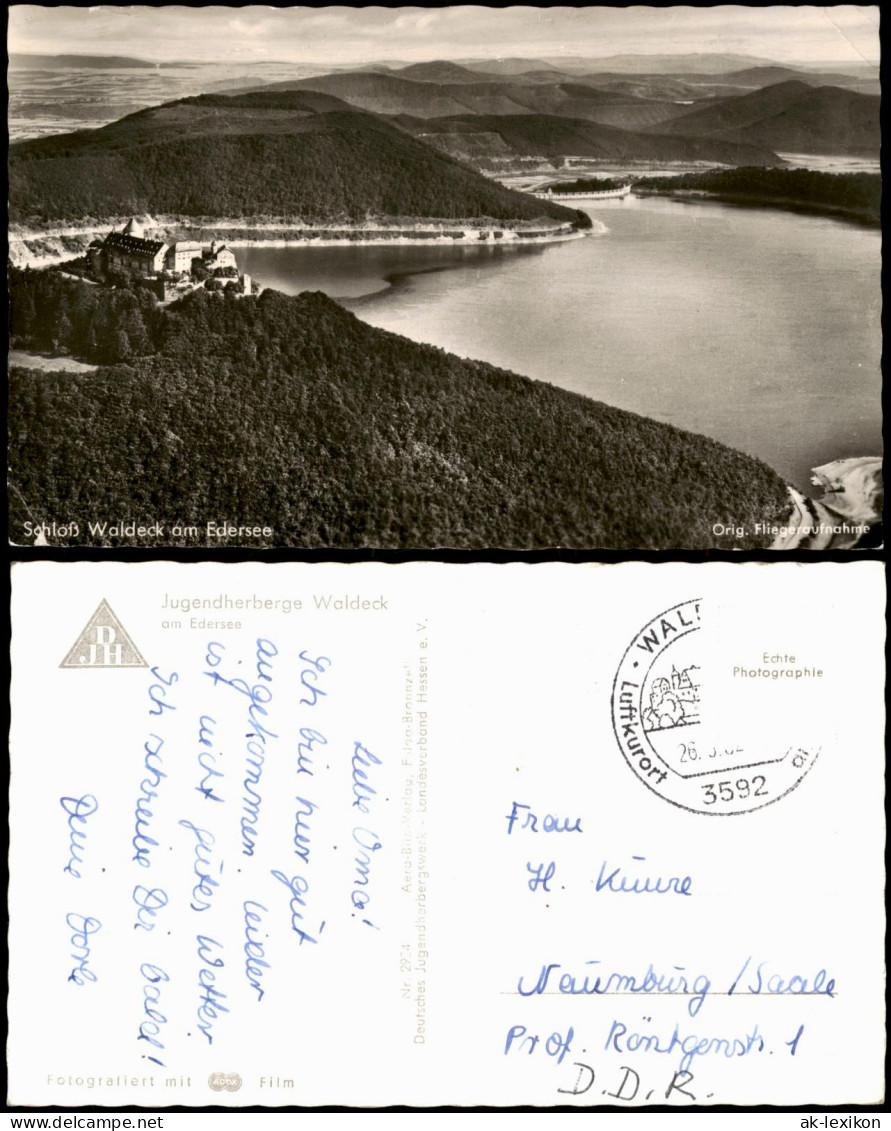 Schloß Waldeck am Edersee
Orig. Fliegeraufnahme
DJH
Jugendherberge Waldeck
am Edersee
Liebe Oma!
Ich bin hier gut
angekommen. Leider
ist nicht gutes Wetter
Ich schreibe Dir bald!
Deine Dorle
Fotografiert mit ADOX Film
Nr. 2924 Aero-Bild-Verlag,
Deutsches Jugendherbergswerk - Landesverband Hessen e. V.
Echte
Photographie
Luftkurort
3592
Frau
H.
Naumburg/Saale
Prof. Röntgenstr. 1
D.D.R.
ak-lexikon